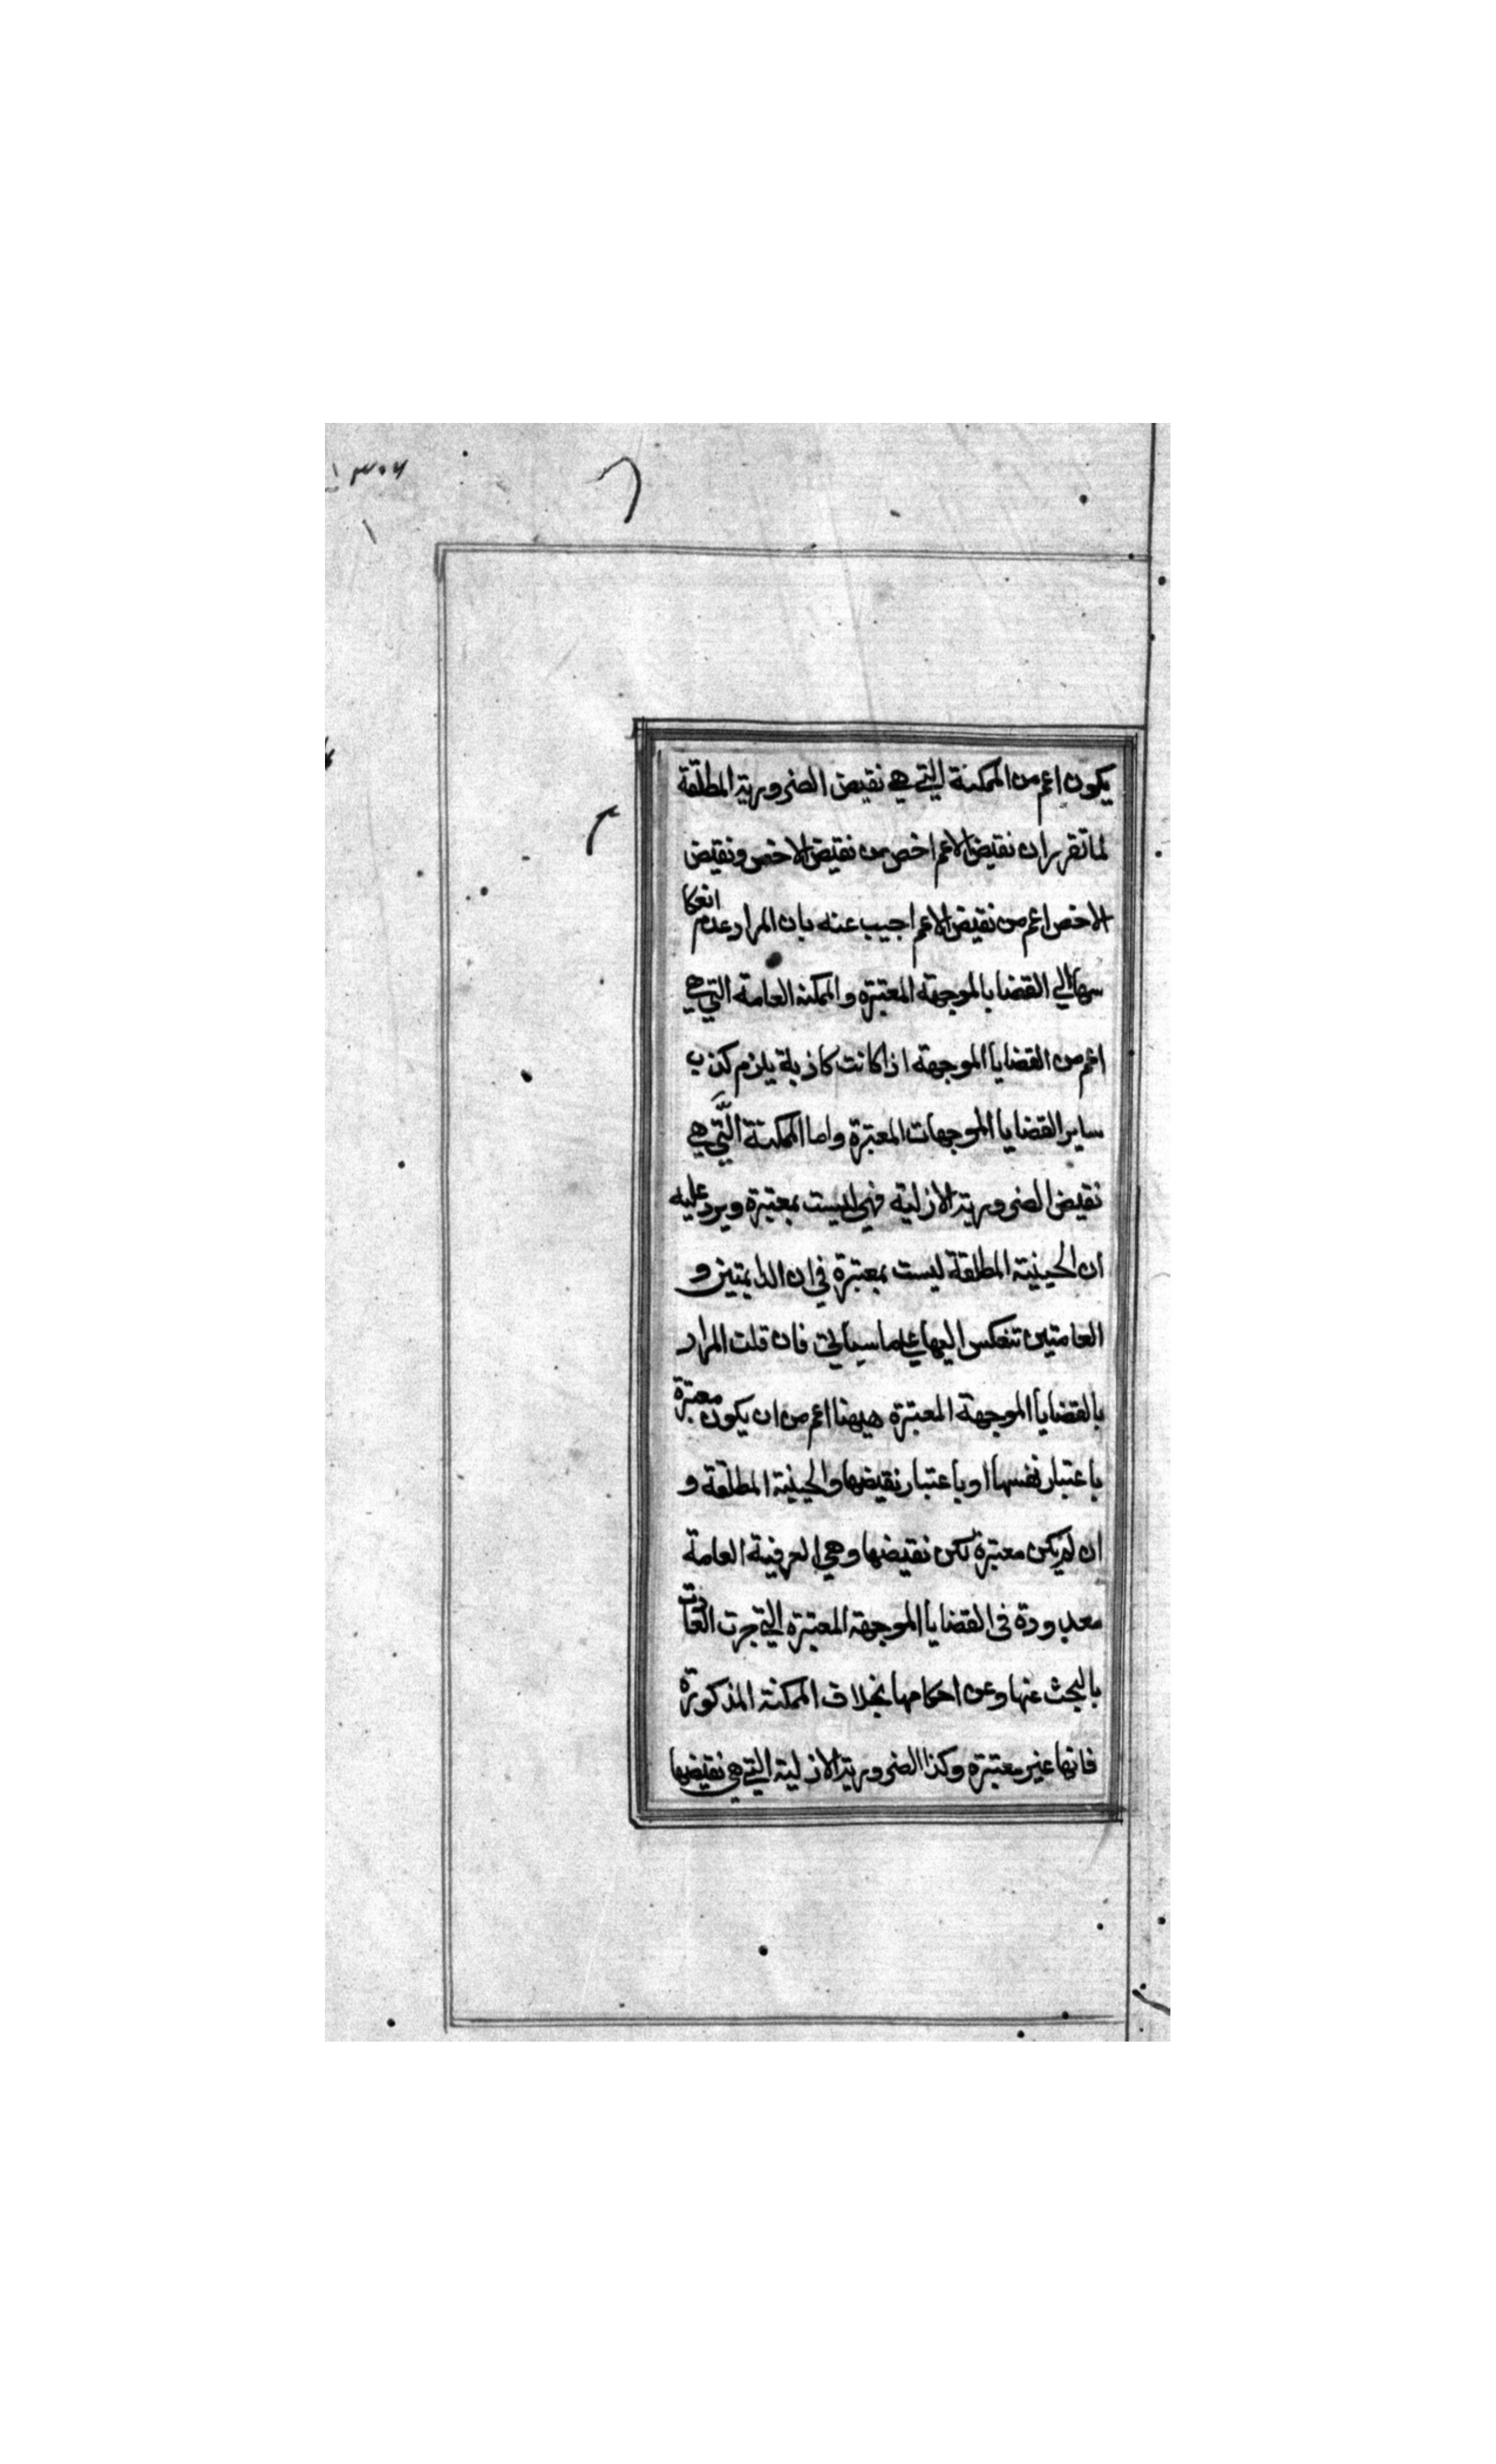 يكون اعم من الممكنة التي هي نقيض الضرورية المطلقة
لما تقرر ان نقيض الاعم اخص من نقيض الاخص ونقيض
الاخص اعم من نقيض الاعم اجيب عنه بان المراد عدم انعكا
سها الي القضايا الموجهة المعتبرة والممكنة العامة التي هي
اعم من القضايا الموجهة اذا كانت كاذبة يلزم كذب
ساير القضايا الموجهات المعتبرة واما الممكنة التي هي
نقيض الضرورية الازلية فهي ليست بمعتبرة ويرد عليه
ان الحينية المطلقة ليست بمعتبرة في ان الدايمتين و
العامتين تنعكس اليها علي ما سياتي فان قلت المراد
بالقضايا الموجهة المعتبرة هيهنا اعم من ان يكون معتبرة
باعتبار نفسها او باعتبار نقيضها والحينية المطلقة و
ان لم يكن معتبرة لكن نقيضها وهي العرفية العامة
معدودة في القضايا الموجهة المعتبرة التي جرت العادت
بالبحث عنها وعن احكامها بخلاف الممكنة المذكورة
فانها غير معتبرة وكذا الضرورية الازلية التي هي نقيضها